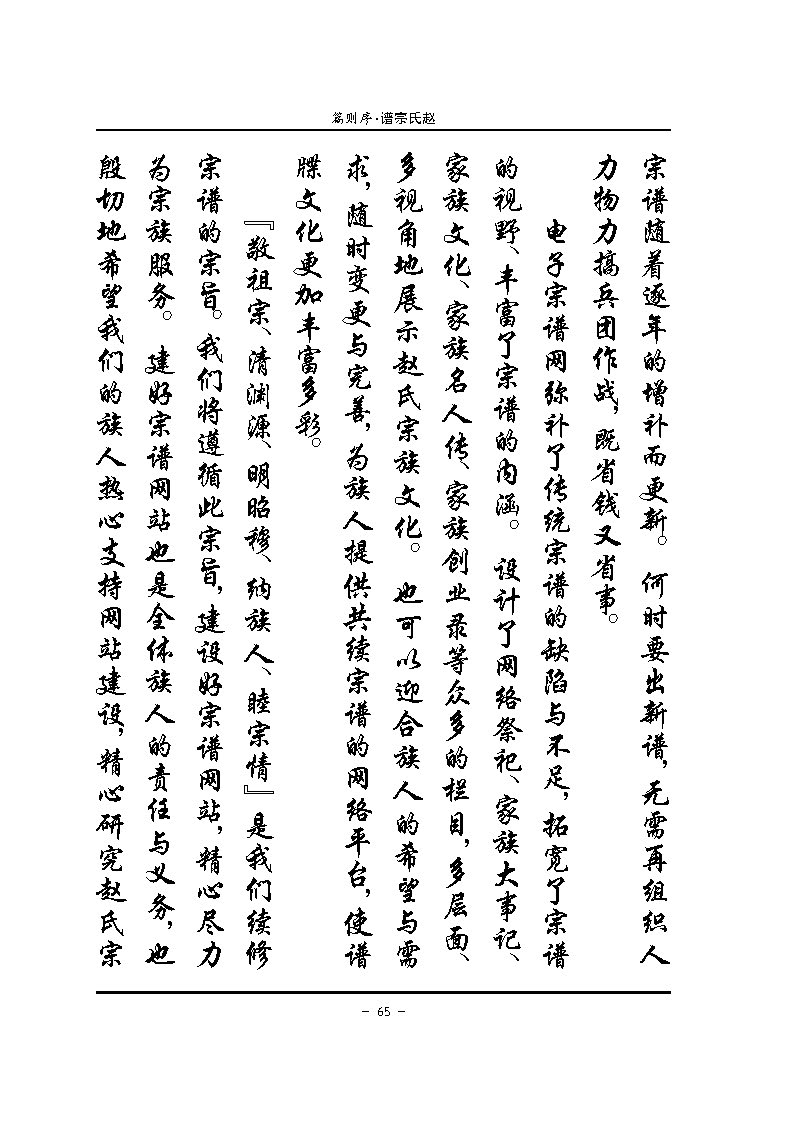 赵氏宗谱·序则篇
宗谱随着逐年的增补而更新。何时要出新谱，无需再组织人
力物力搞兵团作战，既省钱又省事。
电子宗谱网弥补了传统宗谱的缺陷与不足，拓宽了宗谱
的视野、丰富了宗谱的内涵。设计了网络祭祀、家族大事记、
家族文化、家族名人传、家族创业录等众多的栏目，多层面、
多视角地展示赵氏宗族文化。也可以迎合族人的希望与需
求，随时变更与完善，为族人提供共续宗谱的网络平台，使谱
牒文化更加丰富多彩。
『敬祖宗、清渊源、明昭穆、纳族人、睦宗情』是我们续修
宗谱的宗旨。我们将遵循此宗旨，建设好宗谱网站，精心尽力
为宗族服务。建好宗谱网站也是全体族人的责任与义务，也
殷切地希望我们的族人热心支持网站建设，精心研究赵氏宗
- 65 -